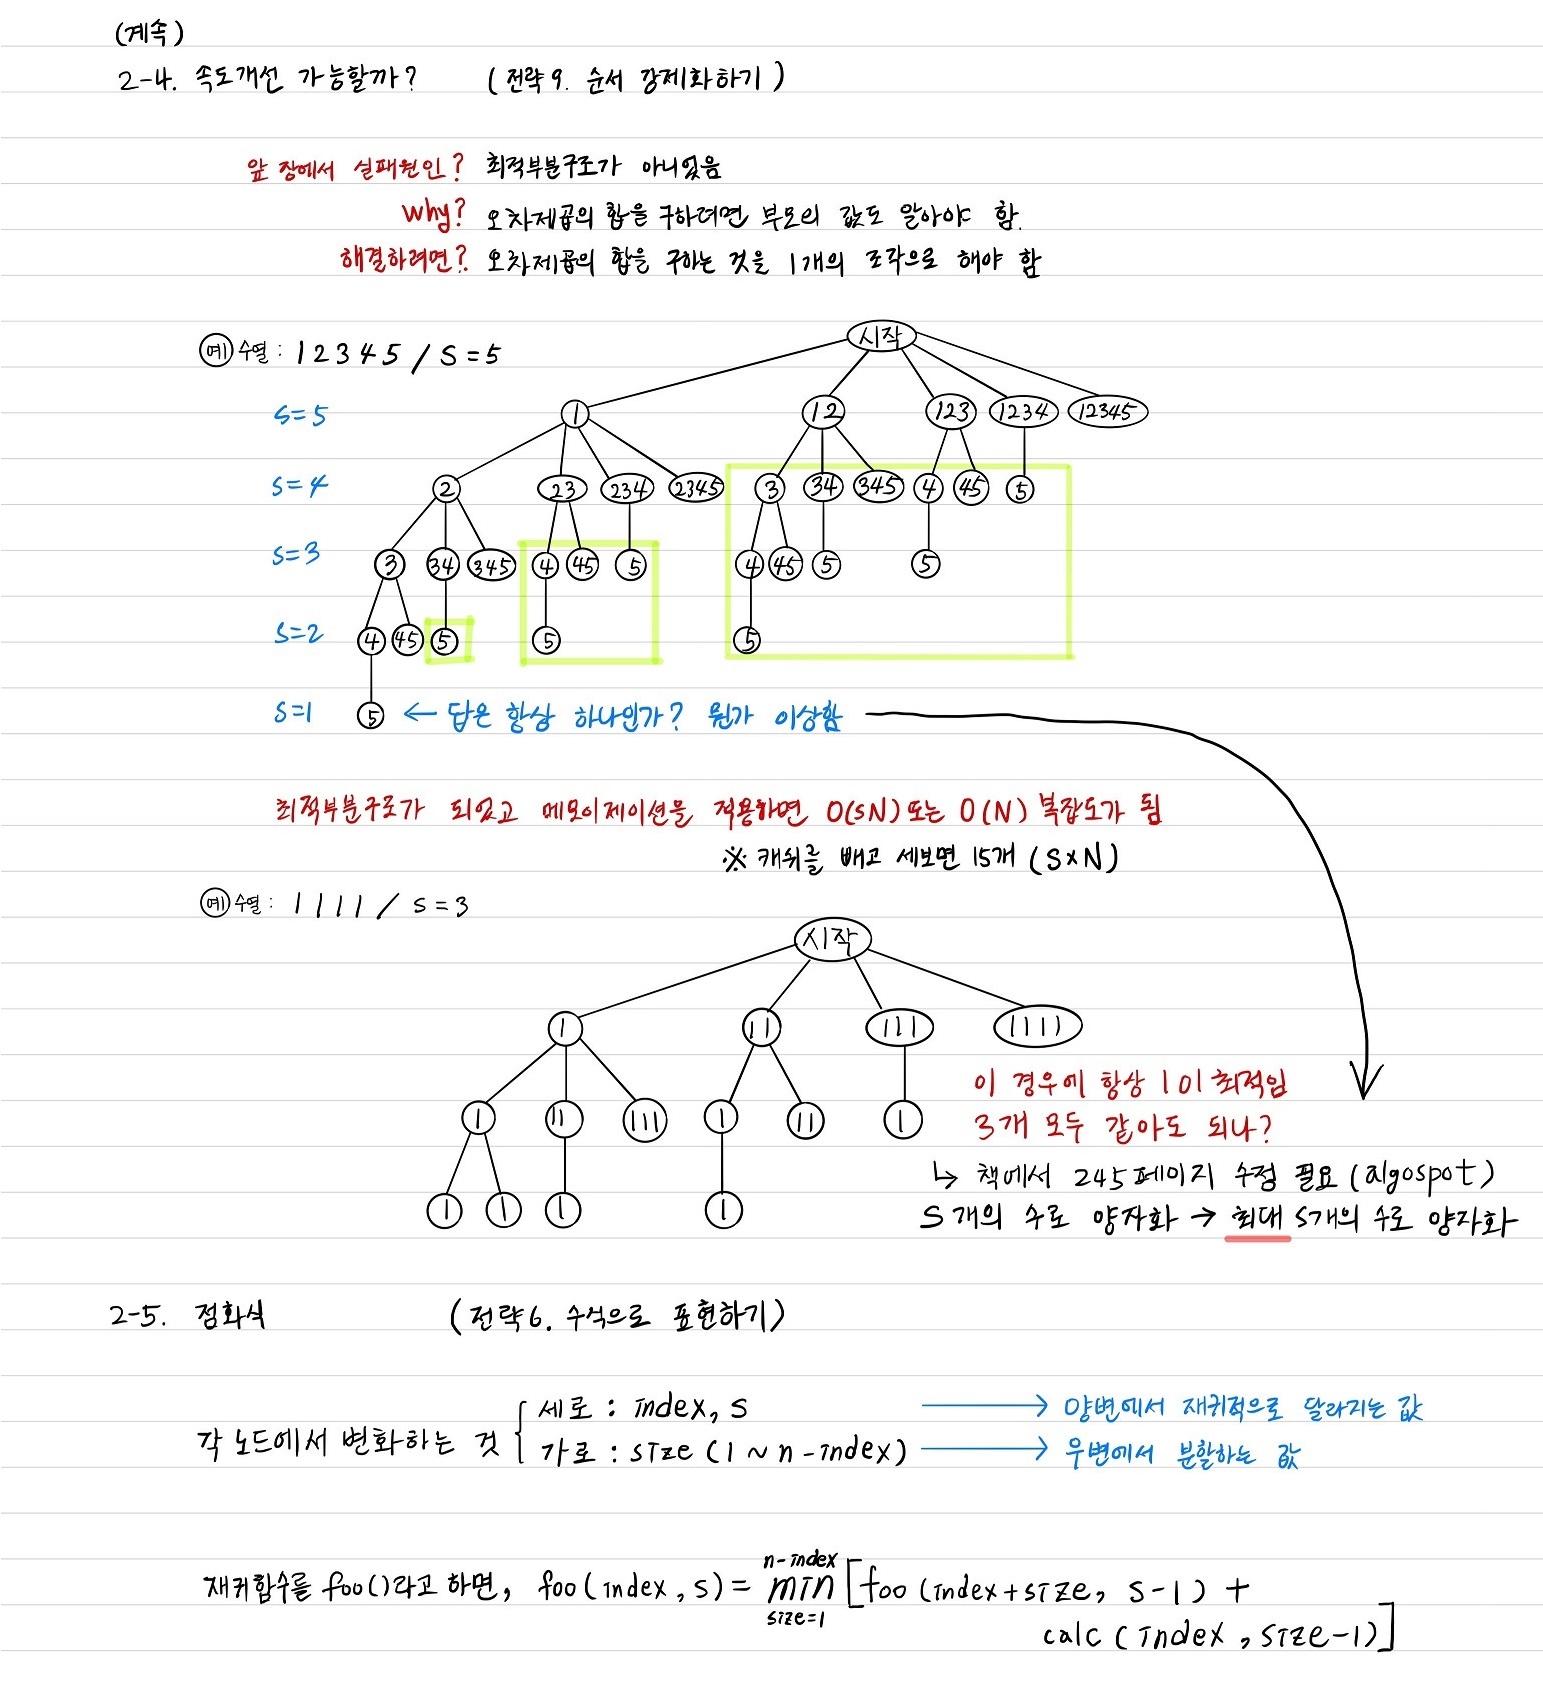 (계속)
2-4. 속도개선 가능할까? (전략 9. 순서 강제화하기)
앞 장에서 실패원인? 최적부분구조가 아니었음
why? 오차제곱의 합을 구하려면 부모의 값도 알아야 함.
해결하려면? 오차제곱의 합을 구하는 것을 1개의 조각으로 해야 함
예 수열 : 1 2 3 4 5 / S = 5
시작
S=5 1 12 123 1234 12345
S=4 2 23 234 2345 3 34 345 4 45 5
S=3 3 34 345 4 45 5 4 45 5 5
S=2 4 45 5 5 5
S=1 5 ← 답은 항상 하나인가? 뭔가 이상함
최적부분구조가 되었고 메모이제이션을 적용하면 O(SN) 또는 O(N) 복잡도가 됨
※ 캐쉬를 빼고 세보면 15개 (S×N)
예 수열 : 1 1 1 1 / S = 3
시작
1 11 111 1111
1 11 111 1 11 1
1 1 1 1
이 경우에 항상 1이 최적임
3개 모두 같아도 되나?
↳ 책에서 245페이지 수정 필요 (algospot)
S개의 수로 양자화 → 최대 S개의 수로 양자화
2-5. 점화식 (전략 6. 수식으로 표현하기)
각 노드에서 변화하는 것
세로 : index, S → 양변에서 재귀적으로 달라지는 값
가로 : size (1 ~ n - index) → 우변에서 분할하는 값
재귀함수를 foo()라고 하면, foo(index, s) = min [foo(index+size, s-1) +
n-index
size=1
calc(index, size-1)]